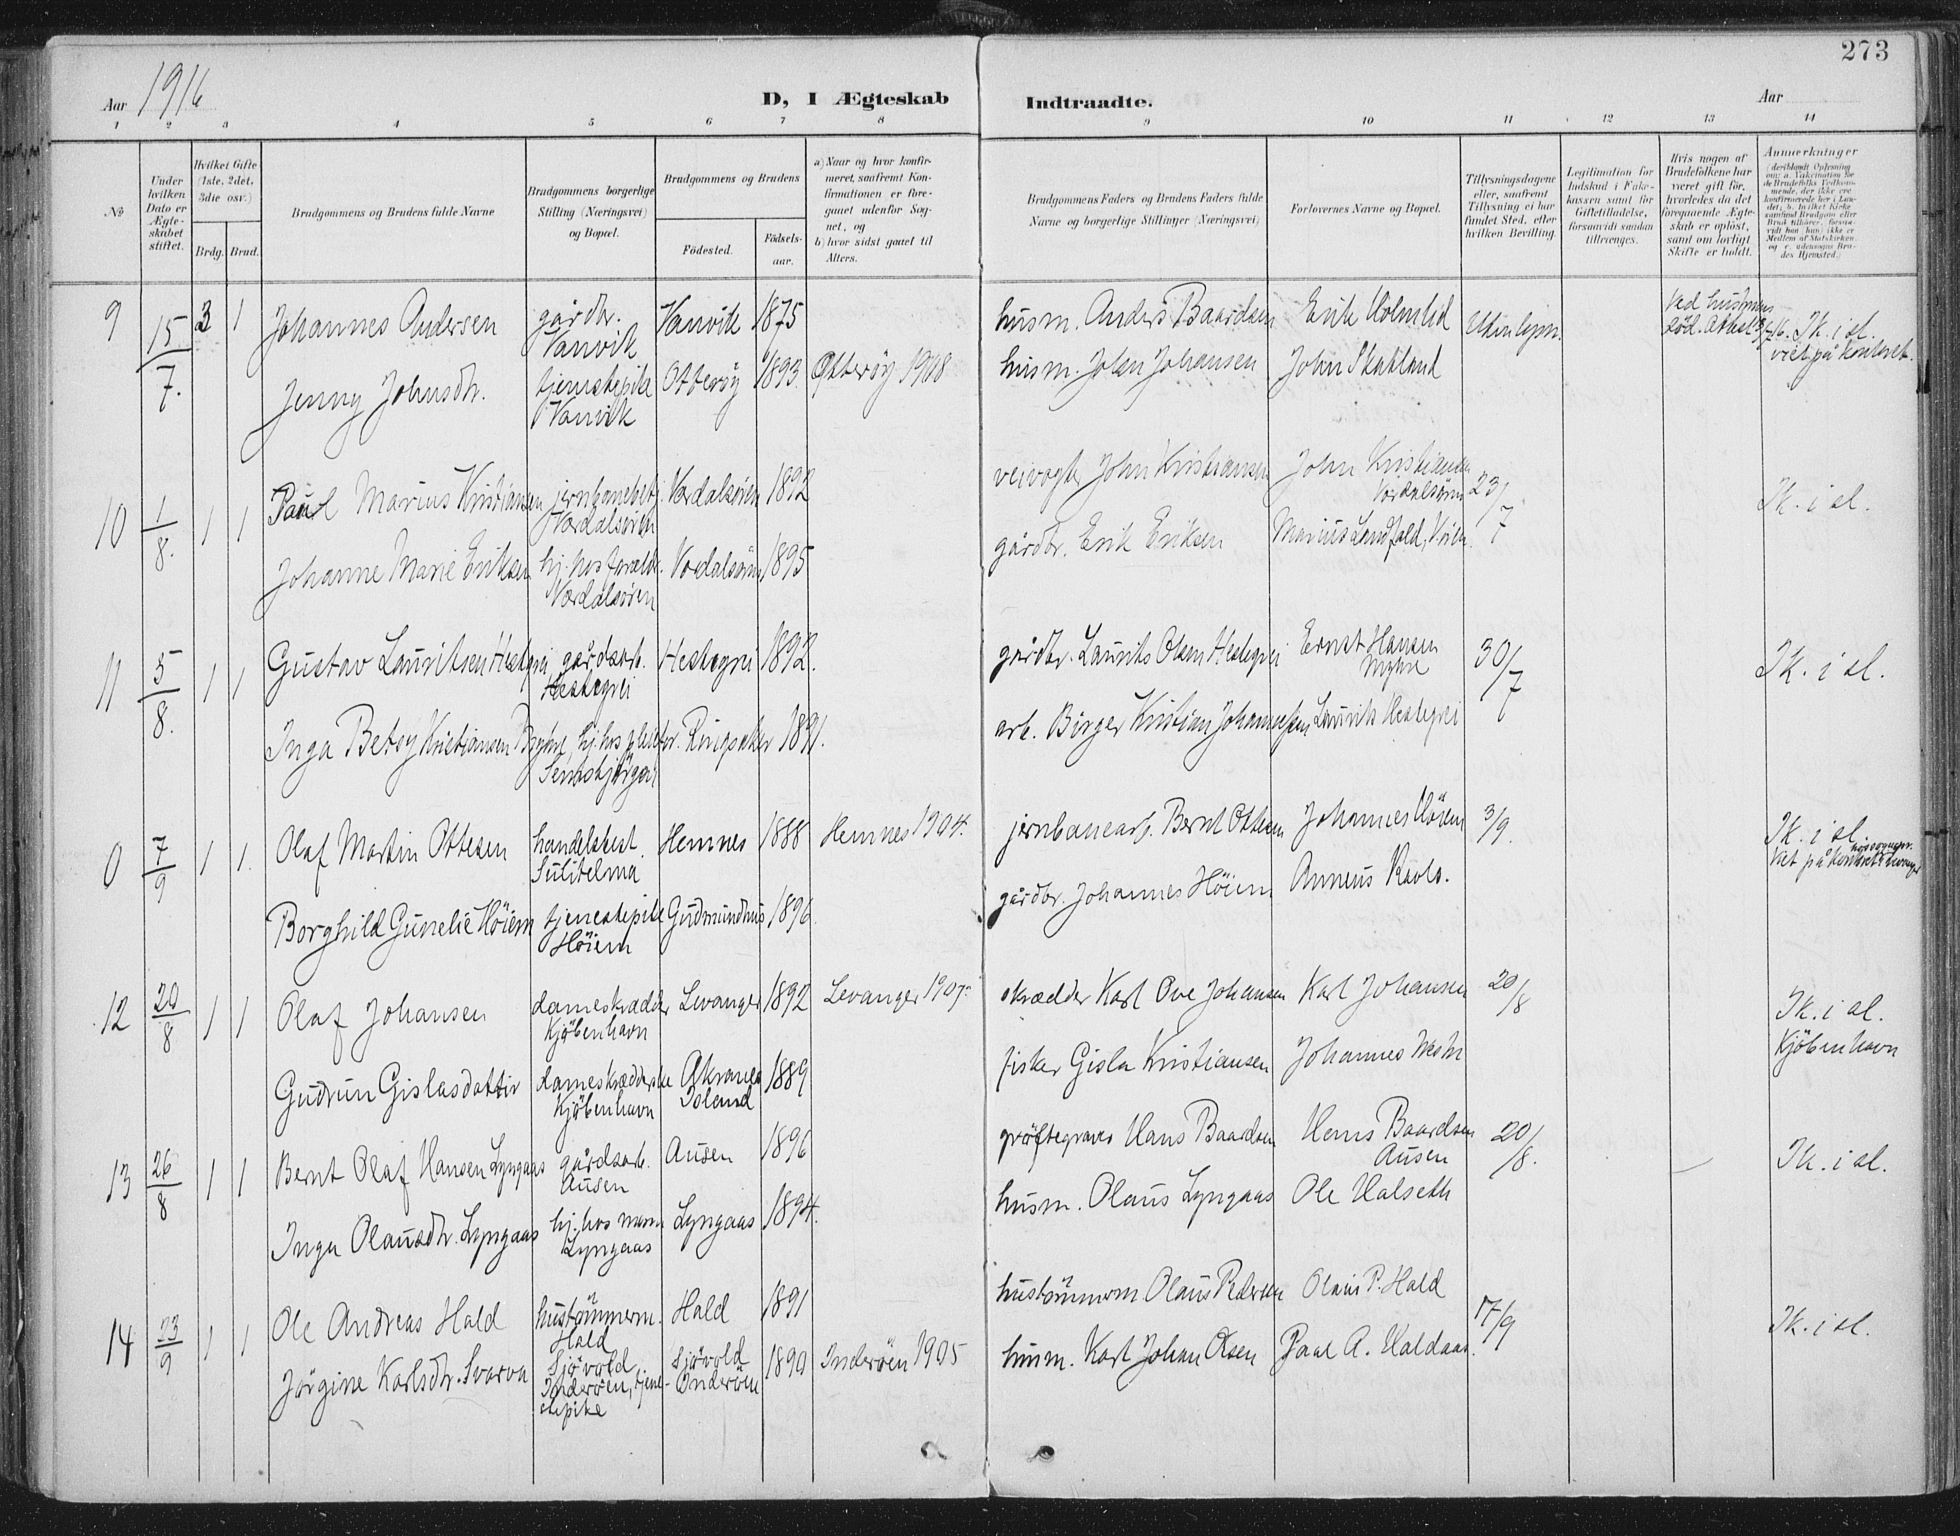 273
Aar 1916
D, I Ægteskab Indtraadte.
Aar
1 2 3 4 5 6 7 8 9 10 11 12 13 14
No
Under hvilken Dato er Ægteskabet stiftet.
Hvilket Gifte (1ste, 2det, 3die osv.)
Brdg. Brud.
Brudgommens og Brudens fulde Navne
Brudgommens borgerlige Stilling (Næringsvei) og Bopæl.
Brudgommens og Brudens
Fødested.
Fødselsaar.
a) Naar og hvor konfirmeret, saafremt Konfirmationen er foregaaet udenfor Sognet, og
b) hvor sidst gaaet til Alters.
Brudgommens Faders og Brudens Faders fulde Navne og borgerlige Stillinger (Næringsvei)
Forlovernes Navne og Bopæl.
Tillysningsdagene eller, saafremt Tillysning ei har fundet Sted, efter hvilken Bevilling.
Legitimation for Indskud i Enkekassen samt for Giftetilladelse, forsaavidt saadan tiltrænges.
Hvis nogen af Brudefolkene har været gift før, hvorledes da det foregaaende Ægteskab er opløst, samt om lovligt Skifte er holdt.
Anmerkninger
9 15/7. 3 1 Johannes Andersen gårdbr. Vanvik Vanvik 1875 husm. Anders Baardsen Erik Holmlid Uten lysn. Ved hustrues død. I k. i sl. viet på kontoret.
Jenny Johnsdtr. tjenestepike Vanvik Otterøy 1893 Otterøy 1908 husm. John Johansen John Skakland
10 1/8. 1 1 Paul Marius Kristiansen jernbanebetj. Værdalsøren Værdalsøren 1892 veivogter John Kristiansen John Kristiansen Værdalsøren 23/7 I k. i sl.
Johanne Marie Eriksen hj. hos foreldr. Værdalsøren Værdalsøren 1895 gårdbr. Erik Eriksen Marius Landfald,
11 5/8. 1 1 Gustav Lauritsen Hestegrei gårdsarb. Hestegrei Hestegrei 1892. gårdbr. Laurits Olsen Hestegrei Ernst Hansen Myhre 30/7 I k. i sl.
Inga Betsy Kristiansen hj. hos pleiefor. Ringsaker 1891. arb. Birger Kristian Johannesen Laurits Hestegrei
0 7/9 1 1. Olaf Martin Ottesen handelsbest. Sulitelma Hemnes 1888 Hemnes 1904. jernbanearb. Bernt Ottesen Johannes Höiem 3/9. I k. i sl. Viet på kontoret
Borghild Gunelie Höiem tjenestepike Höiem Gudmundhus 1896. gårdbr. Johannes Höiem Anneus Ravlo.
12 20/8 1 1 Olaf Johansen dameskrædder Kjöbenhavn Levanger 1892 Levanger 1907. skrædder Karl Ove Johansen Karl Johansen 20/8 I k. i sl. Kjöbenhavn
Gudrun Gislasdottir dameskrædderske Kjöbenhavn Akranes Island 1889 fisker Gisla Kristiansen Johannes
13 26/8 1 1 Bernt Olaf Hansen Lyngaas gårdsarb. Ausen Ausen 1896 gröftegraver Hans Baardsen Hans Baardsen Ausen 20/8. I k. i sl.
Inga Olausdtr. Lyngaas hj. hos mor Lyngaas Lyngaas 1894. husm. Olaus Lyngaas Ole Halseth
14 23/9 1 1 Ole Andreas Hald hustömmerm. Hald Hald 1891 hustömmerm Olaus Pedersen Olaus P. Hald 17/9 I k. i sl.
Jörgine Karlsdtr. Svarva Sjövold Inderöen, tjenestepike Sjövold Inderöen 1890 Inderöen 1905 husm. Karl Johan Olsen Paul A. Haldaas.